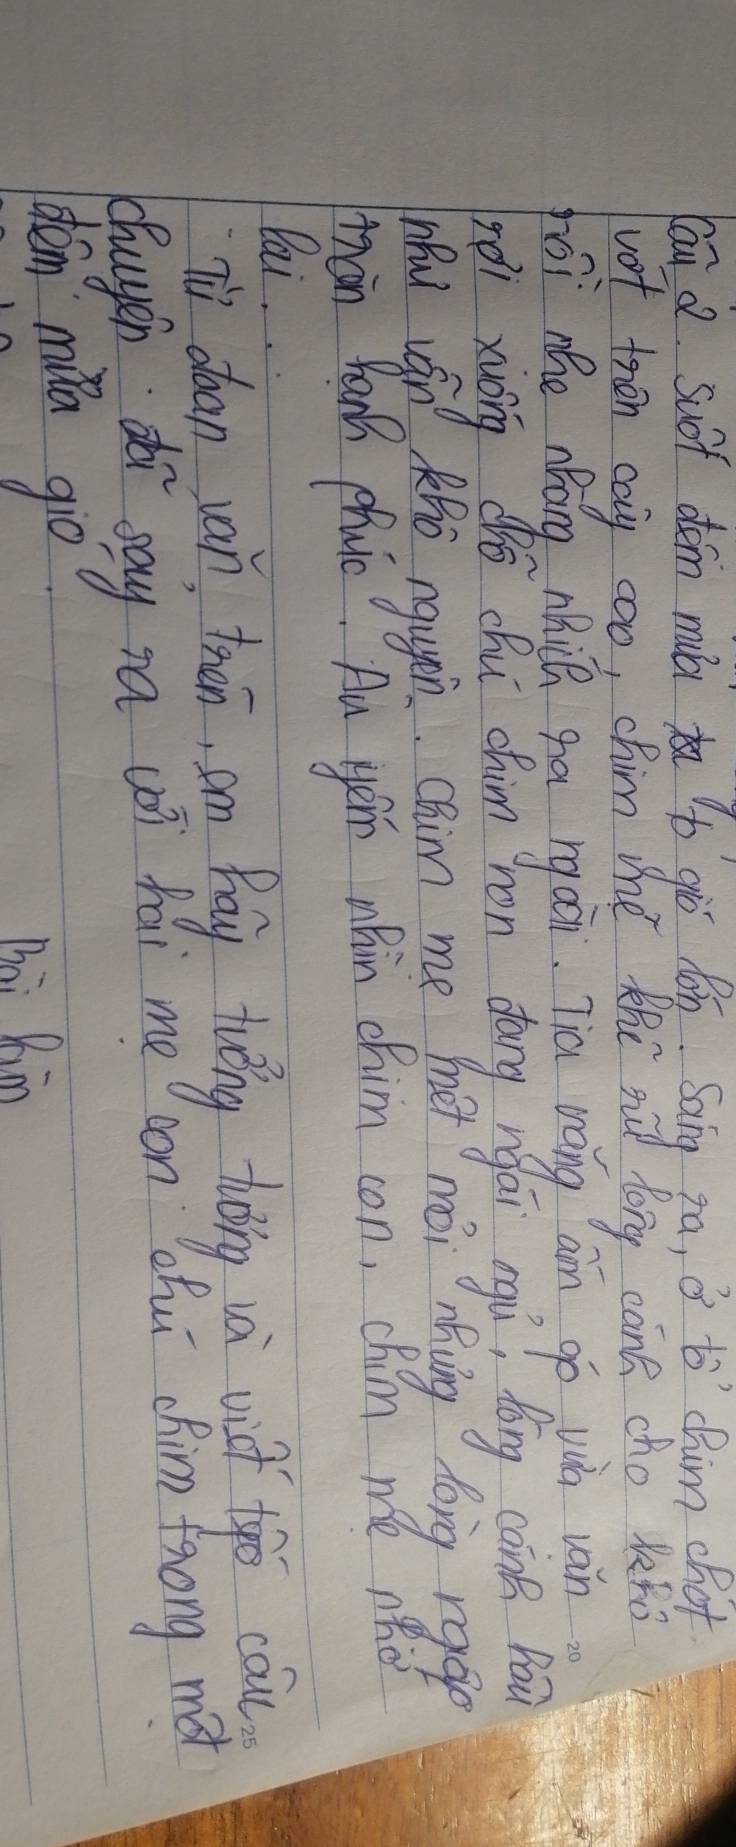 Câu 2. Suốt đêm mưa to gió lớn. Sáng ra, ở tổ chim chót
vót trên cây cao, chim mẹ khẽ rũ lông cánh cho khô
rồi nhẹ nhàng nhích ra ngoài. Tia nắng ấm áp vừa vặn
rơi xuống chỗ chú chim non đang ngái ngủ, lông cánh hầu
như vẫn khô nguyên. Chim mẹ mệt mỏi nhưng lòng ngập
tràn hạnh phúc. Âu yếm nhìn chim con, chim mẹ nhớ
lại...
Từ đoạn văn trên, em hãy tưởng tượng và viết tiếp câu
chuyện đã sảy ra với hai mẹ con chú chim trong một
đêm mưa gió.
Bài làm